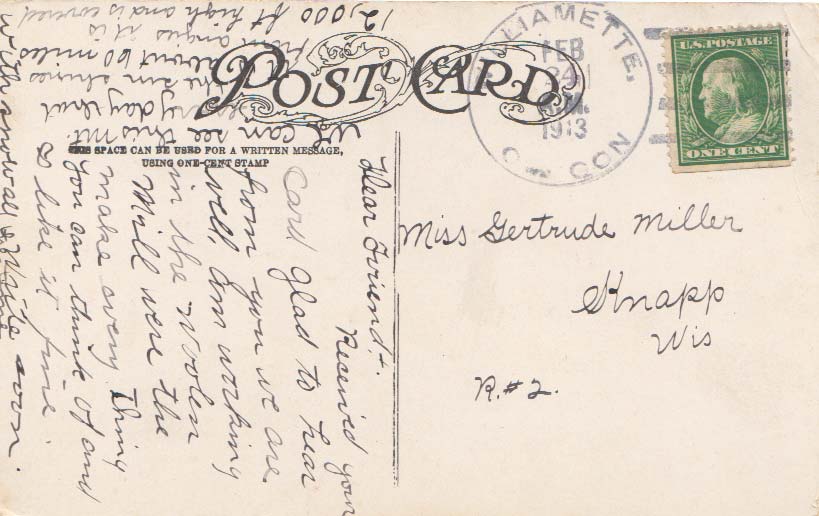 POST CARD
THIS SPACE CAN BE USED FOR A WRITTEN MESSAGE,
USING ONE-CENT STAMP
LIAMETTE,
FEB
24
1913
U.S. POSTAGE
ONE CENT
Miss Gertrude Miller
Knapp
Wis
R.#2.
Dear Friend:
Received your
card glad to hear
from you we are
well, Am working
in the Woolen
Mill were the
make every thing
you can think of and
I like it fine.
Write soon.
We can see this mt.
every day that
the sun shines
about 60 miles
from angis it is
12,000 ft high and is covered
with snow all